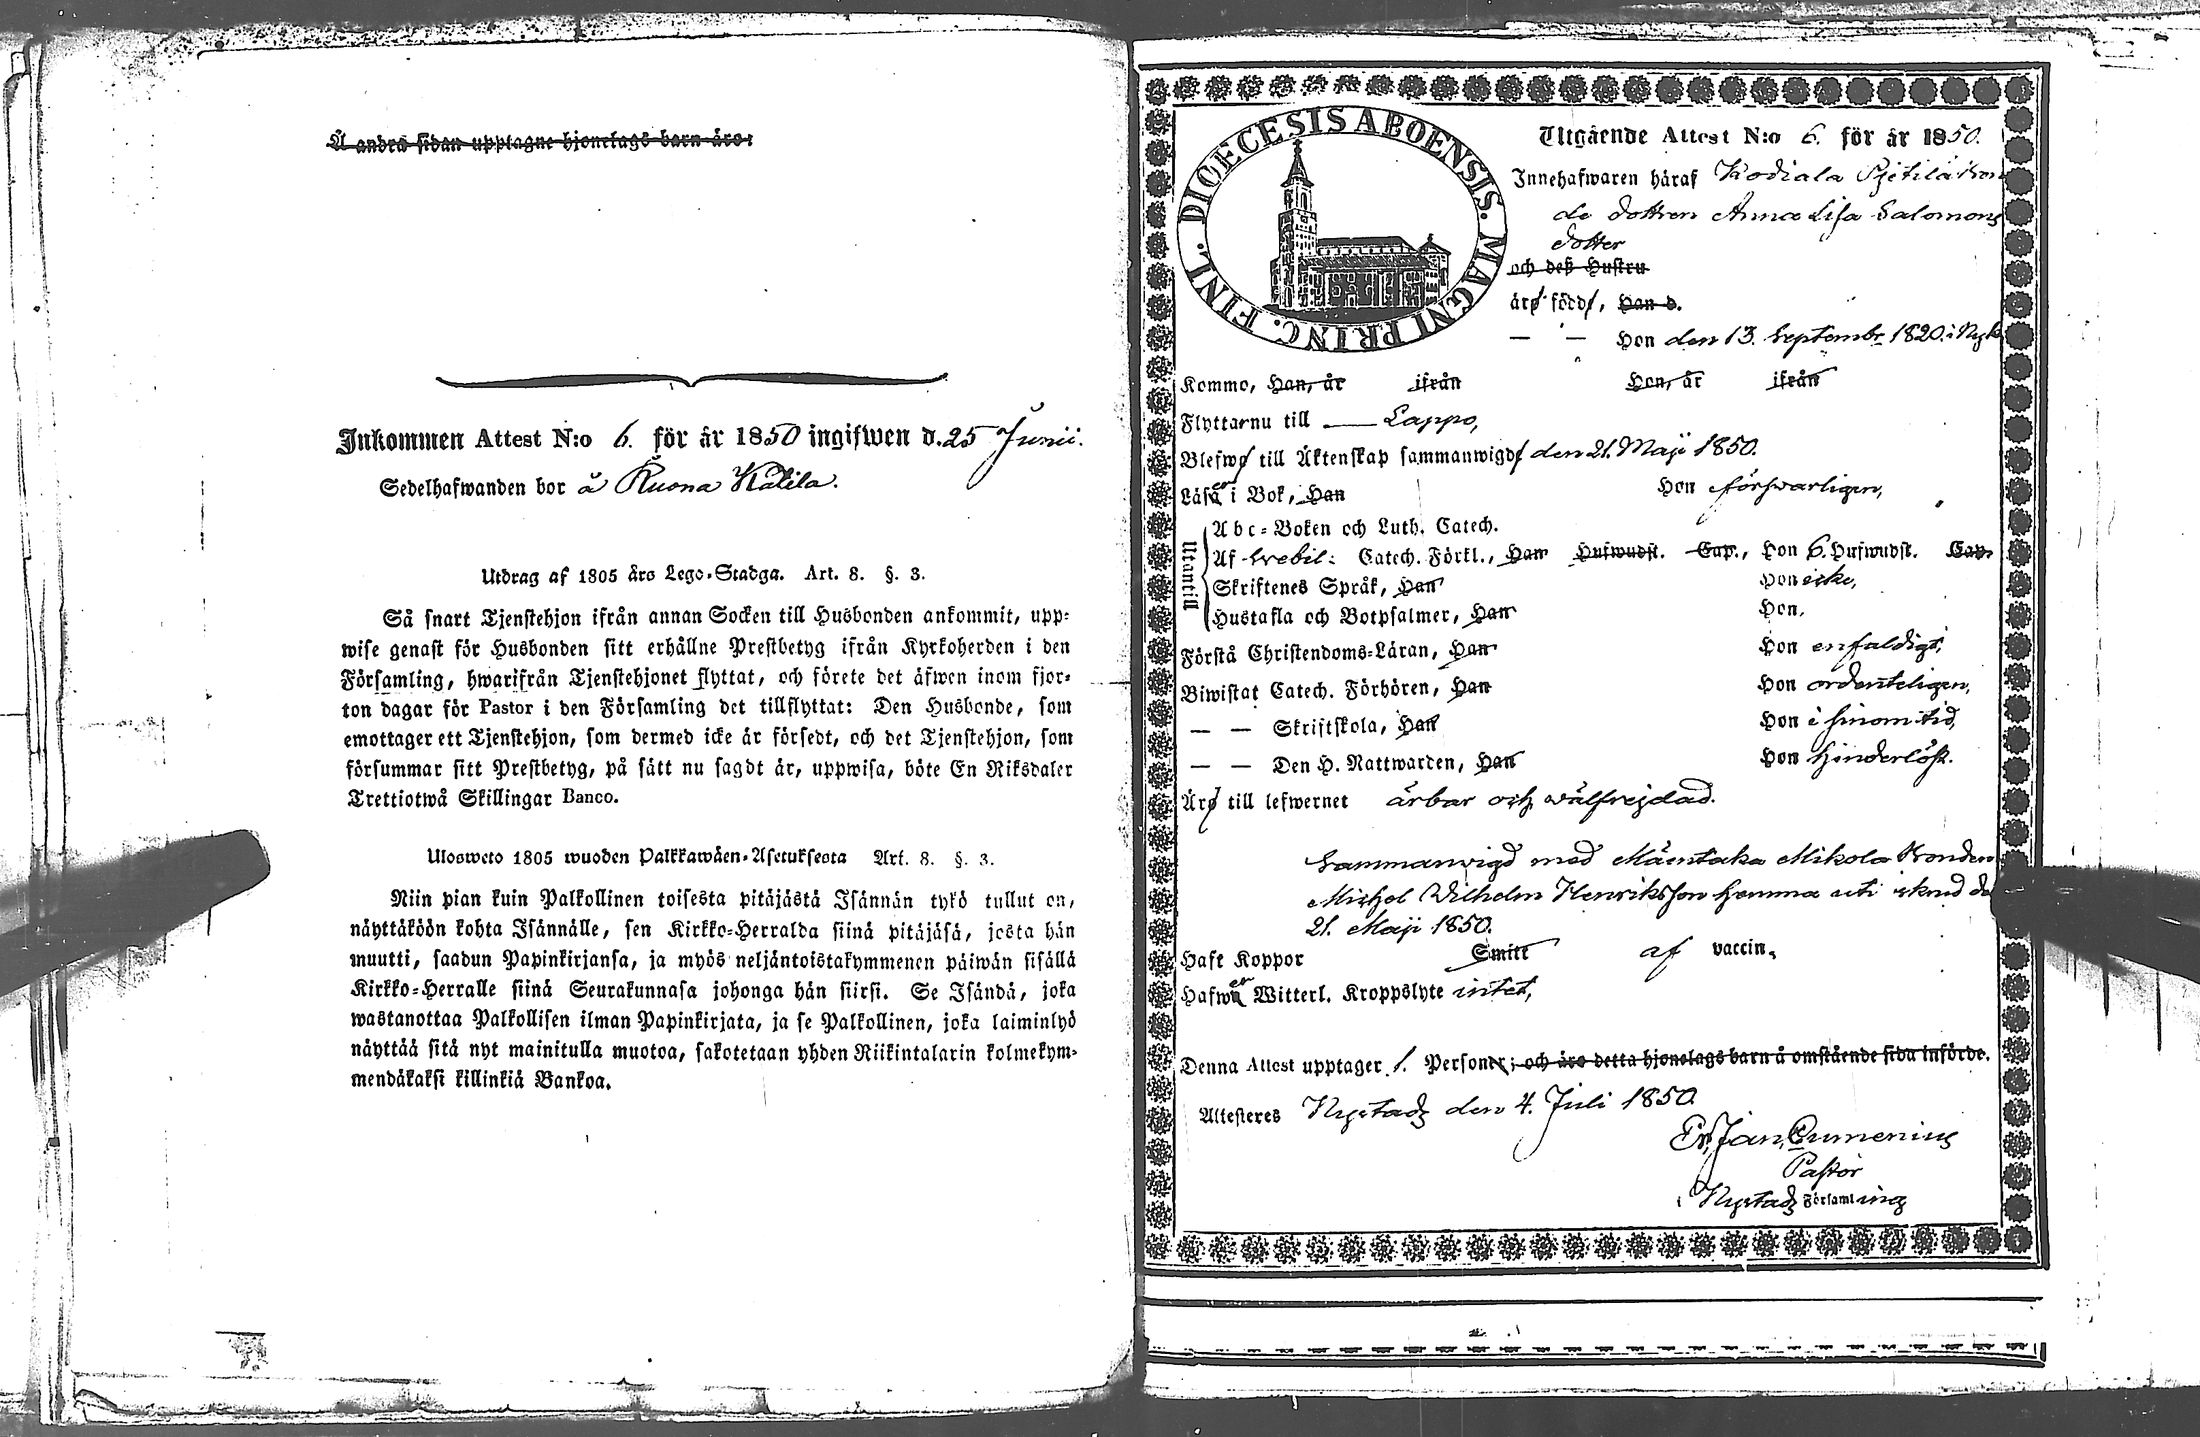 Å andra sidan upptagne hjonelags barn äro:
Inkommen Attest N:o 6. för år 1850 ingifwen d. 25 Junii.
Sedelhafwanden bor å Ruona Kätilä.
Utdrag af 1805 års Lego-Stadga. Art. 8. §. 3.
Så snart Tjenstehjon ifrån annan Socken till Husbonden ankommit, upp-
wise genast för Husbonden sitt erhållne Prestbetyg ifrån Kyrkoherden i den
Församling, hwarifrån Tjenstehjonet flyttat, och förete det äfwen inom fjor-
ton dagar för Pastor i den Församling det tillflyttat: Den Husbonde, som
emottager ett Tjenstehjon, som dermed icke är försedt, och det Tjenstehjon, som
försummar sitt Prestbetyg, på sätt nu sagdt är, uppwisa, böte En Riksdaler
Trettiotwå Skillingar Banco.
Ulosweto 1805 wuoden Palkkawäen-Asetuksesta Art. 8. §. 3.
Niin pian kuin Palkollinen toisesta pitäjästä Isännän tykö tullut on,
näyttäköön kohta Isännälle, sen Kirkko-Herralda siinä pitäjäsä, josta hän
muutti, saadun Papinkirjansa, ja myös neljäntoistakymmenen päiwän sisällä
Kirkko-Herralle siinä Seurakunnasa johonga hän siirsi. Se Isändä, joka
wastanottaa Palkollisen ilman Papinkirjata, ja se Palkollinen, joka laiminlyö
näyttää sitä nyt mainitulla muotoa, sakotetaan yhden Riikintalarin kolmekym-
mendäkaksi killinkiä Bankoa.
DIOECESIS ABOENSIS. MAGNI PRINC. FINL.
Utgående Attest N:o 6. för år 1850.
Innehafwaren häraf Kodiala Pjetilä Bon
de dottren Anna Lisa Salomons
dotter
och deß Hustru
äro födde, Han d.
— — Hon den 13. Septembr 1820. i Nyk
Kommo, Han, år ifrån Hon, år ifrån
Flyttar nu till — Lappo,
Blefwo till Äktenskap sammanwigde den 21. Maji 1850.
Läsa i Bok, Han Hon förswarligen,
Utantill
Abc-Boken och Luth. Catech.
Af Svebil: Catech. Förkl., Han Hufwudst. Cap., Hon 6. Hufwudst. Cap.
Skriftenes Språk, Han Hon icke,
Hustafla och Botpsalmer, Han Hon,
Förstå Christendoms-Läran, Han Hon enfaldigt,
Biwistat Catech. Förhören, Han Hon ordenteligen,
— — Skriftskola, Han Hon i sinom tid,
— — Den H. Nattwarden, Han Hon hinderlöst.
Äro till lefwernet ärbar och wälfrejdad.
Sammanwigd med Mäentaka Mikola Bonden
Michel Wilhelm Henriksson hemma
21. Maji 1850.
Haft Koppor Smitt af vaccin.
Hafwa Witterl. Kroppslyte intet,
Denna Attest upptager 1. Personer; och äro detta hjonelags barn å omstående sida införde.
Attesteres Nystad den 4. Juli 1850.
Pastor
i Nystads Församling